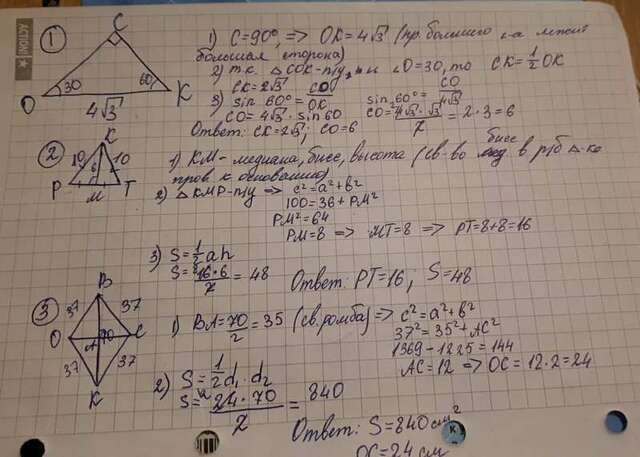 ACTION!
1
C
30
60
O
K
4√3
1) C=90°, => OK=4√3 (пр. большего ∠-а лежит
большая сторона)
2) т.к. △COK-п/у, и ∠O=30, то CK=1/2 OK
CK=2√3
3) sin 60°=CO/OK sin 60°=CO/4√3
CO=4√3·sin 60 CO=4√3·√3/2=2·3=6
Ответ: CK=2√3; CO=6
2
K
10
6
10
P
M
T
1) KM-медиана, бисс, высота (св-во бисс в р/б △-ке
пров к основанию)
2) △KMP-п/у => c²=a²+b²
100=36+PM²
PM²=64
PM=8 => MT=8 => PT=8+8=16
3) S=1/2ah
S=16·6/2=48
Ответ: PT=16; S=48
3
B
37
37
O
A
70
C
37
37
K
1) BA=70/2=35 (св. ромба) => c²=a²+b²
37²=35²+AC²
1369-1225=144
AC=12 => OC=12·2=24
2) S=1/2d₁·d₂
S=24·70/2=840
Ответ: S=840см²
OC=24см